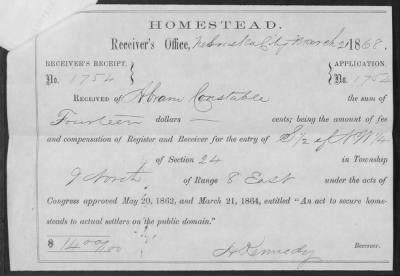 HOMESTEAD.
Receiver's Office, Nebraska City March 21 1868.
RECEIVER'S RECEIPT. APPLICATION.
No. 1754 No. 1754
RECEIVED OF Abram Constable the sum of
Fourteen dollars — cents; being the amount of fee
and compensation of Register and Receiver for the entry of S 1/2 of N W 1/4
of Section 24 in Township
9 North of Range 8 East under the acts of
Congress approved May 20, 1862, and March 21, 1864, entitled "An act to secure home-
steads to actual settlers on the public domain."
$ 14 00/100 Kennedy Receiver.